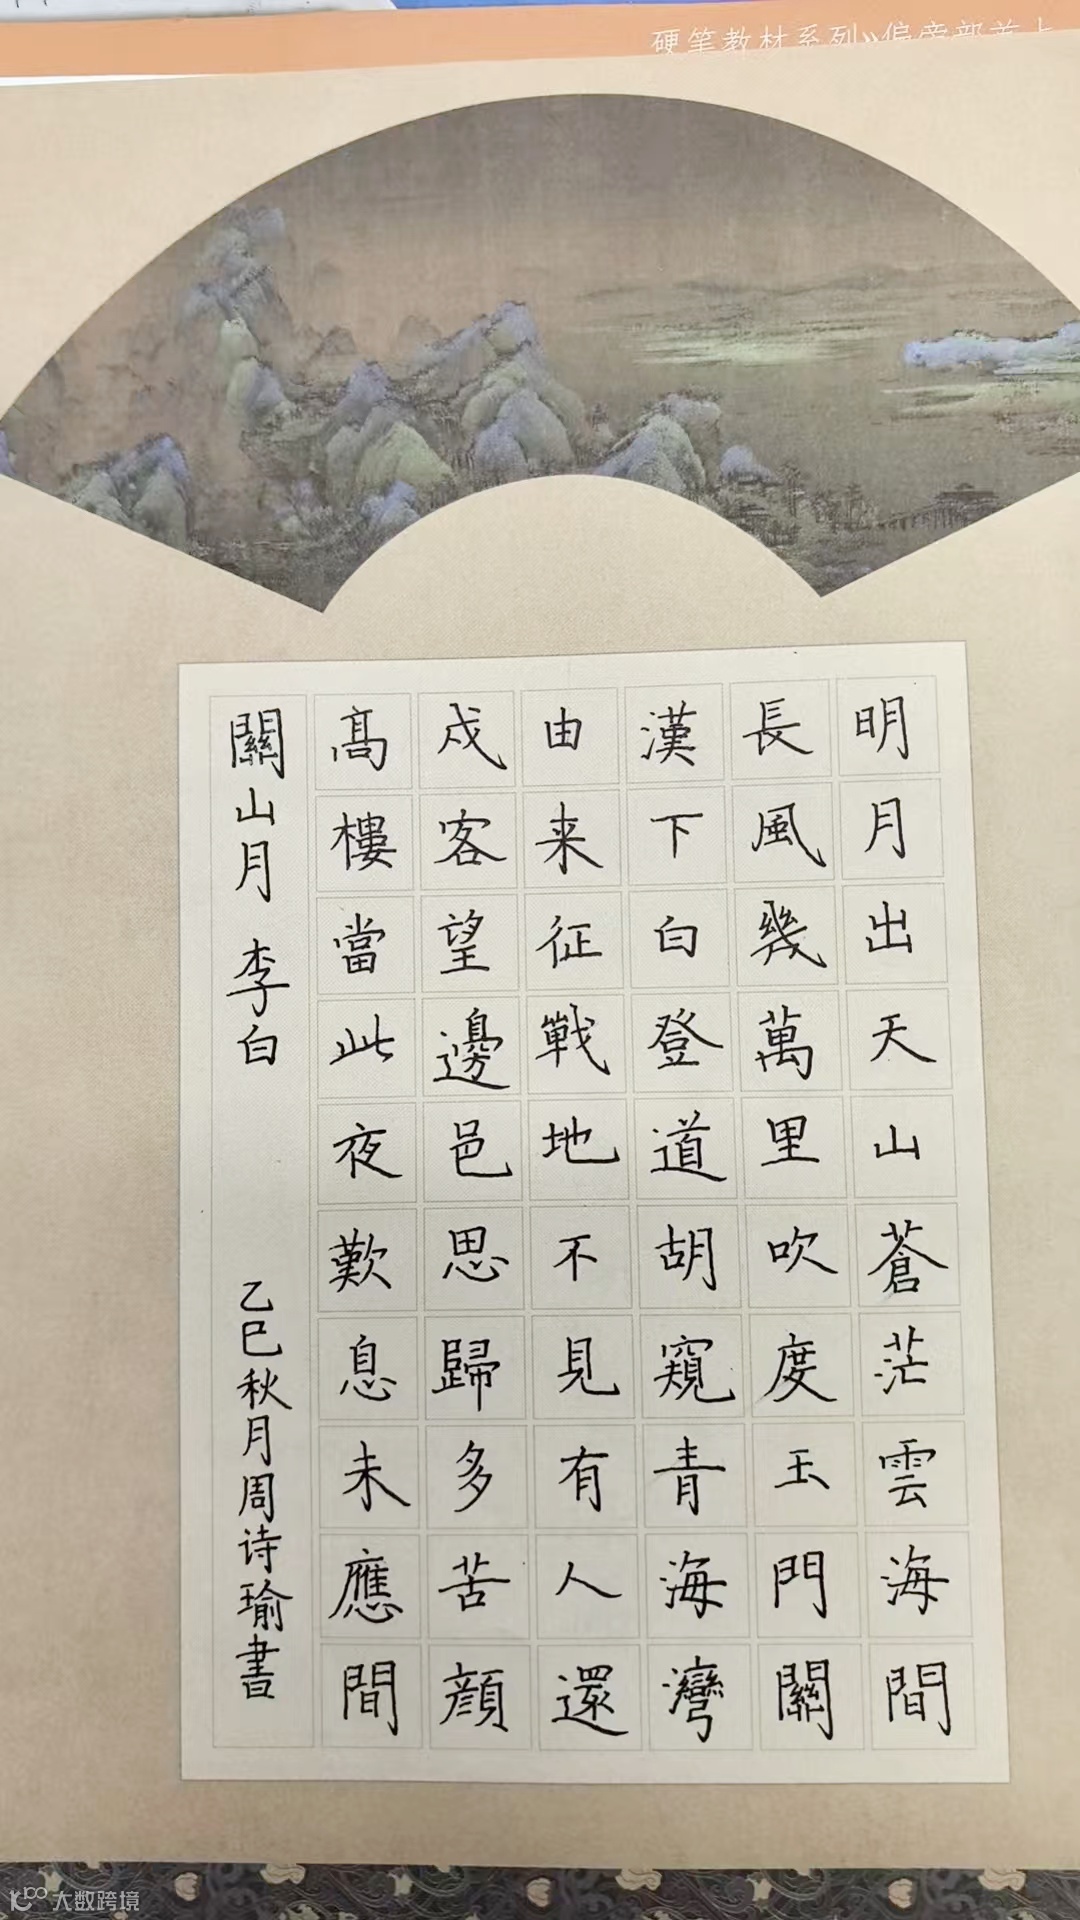 硬笔教材系列》偏旁部首上
明月出天山蒼茫雲海間
長風幾萬里吹度玉門關
漢下白登道胡窺青海灣
由来征戰地不見有人還
戍客望邊邑思歸多苦顔
髙樓當此夜歎息未應間
關山月 李白 乙巳秋月周诗瑜書
大数跨境